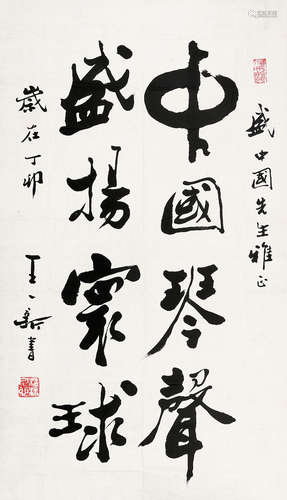 盛中國先生雅正
中國琴聲
盛揚寰球
歲在丁卯
王一新書